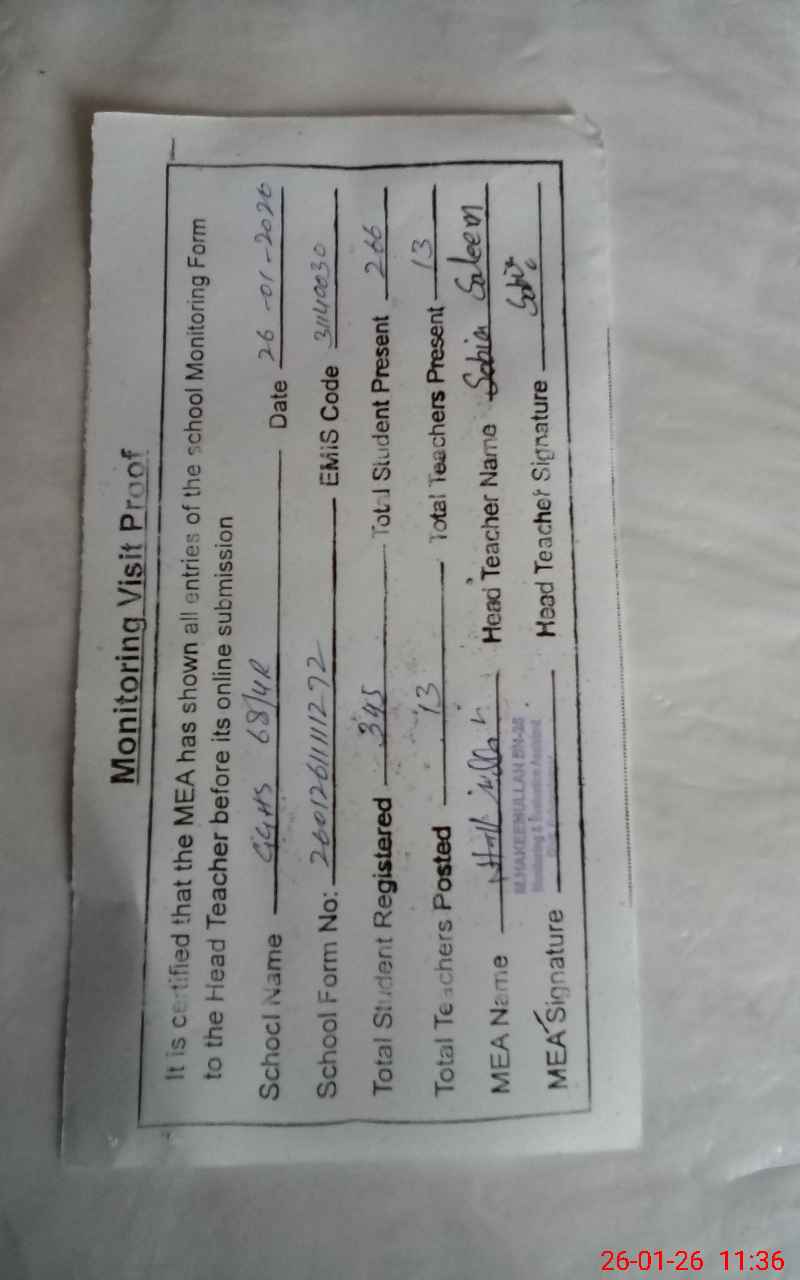 Monitoring Visit Proof
It is certified that the MEA has shown all entries of the school Monitoring Form
to the Head Teacher before its online submission
School Name GGHS 68/4R Date 26-01-2026
School Form No: 260126111111272 EMIS Code 31140030
Total Student Registered 345 Total Student Present 266
Total Teachers Posted 13 Total Teachers Present 13
MEA Name Head Teacher Name Sobia Saleem
M.HAKEEMULLAH BN-36
Monitoring & Evaluation Assistant
MEA Signature Head Teacher Signature Sobia
26-01-26 11:36